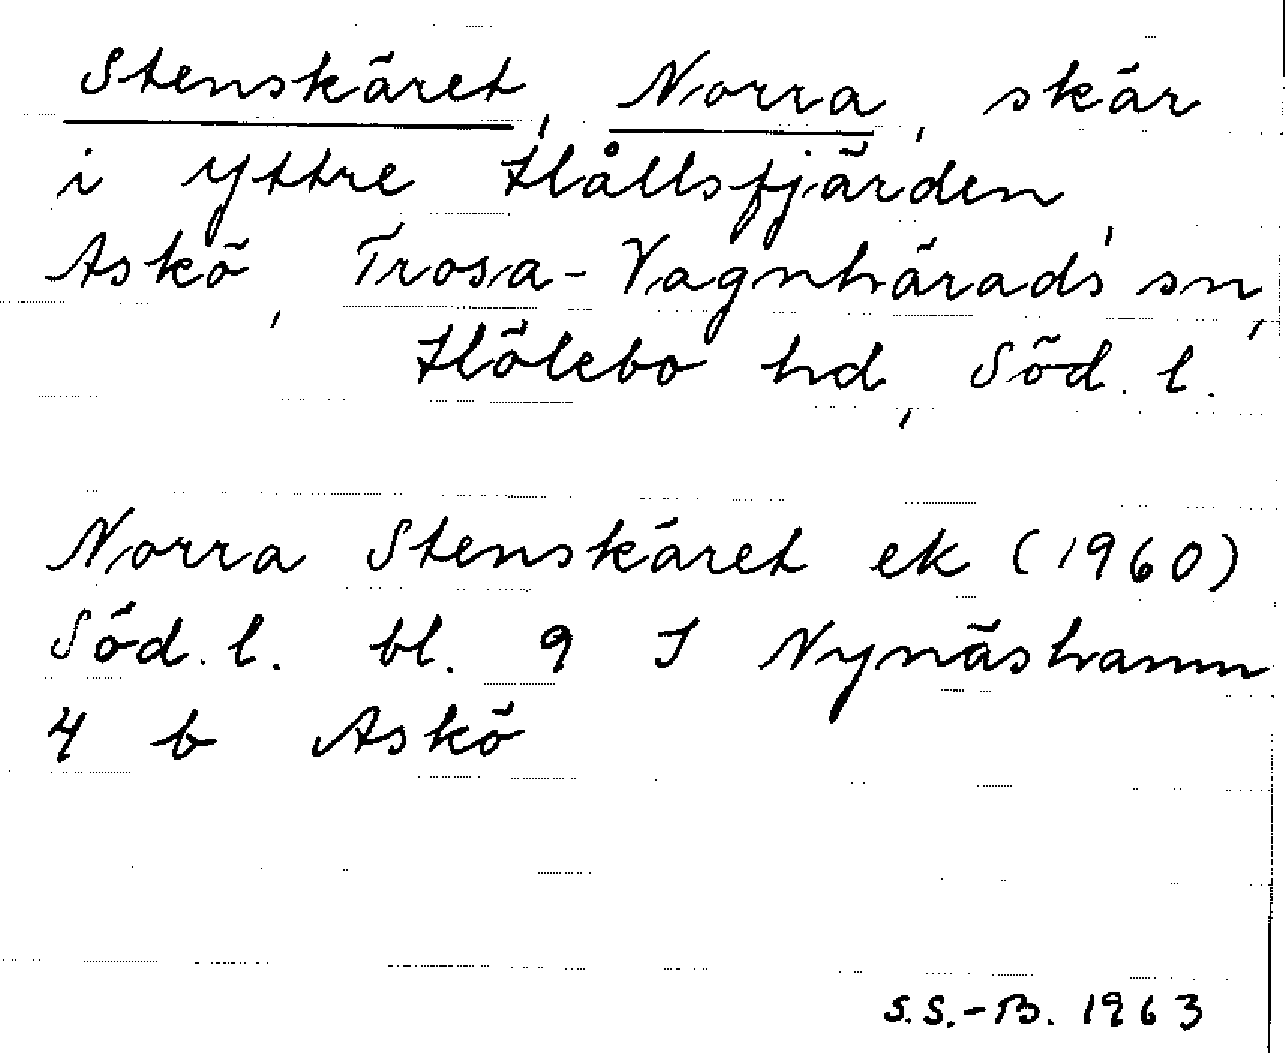 Stenskäret, Norra, skär
i yttre Hållsfjärden,
Askö, Trosa-Vagnhärads sn,
Hölebo hd, Söd. l.
Norra Stenskäret ek (1960)
Söd. l. bl. 9 J Nynäshamn
4 b Askö
S.S.-B. 1963